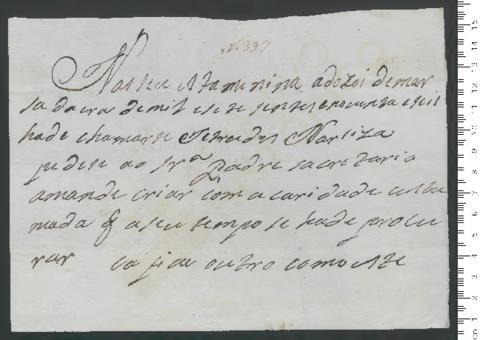 N 397
Nasseu esta minina a dezoi de mar
sa da era de mil e sete sentos e noventa e seis
hade chamarse Getrudes Narsiza
pedese ao Sr.ª Padre sacretario
amande criar com a caridade custu
mada q a seu tempo se hade procu
rar ca fica outro como este